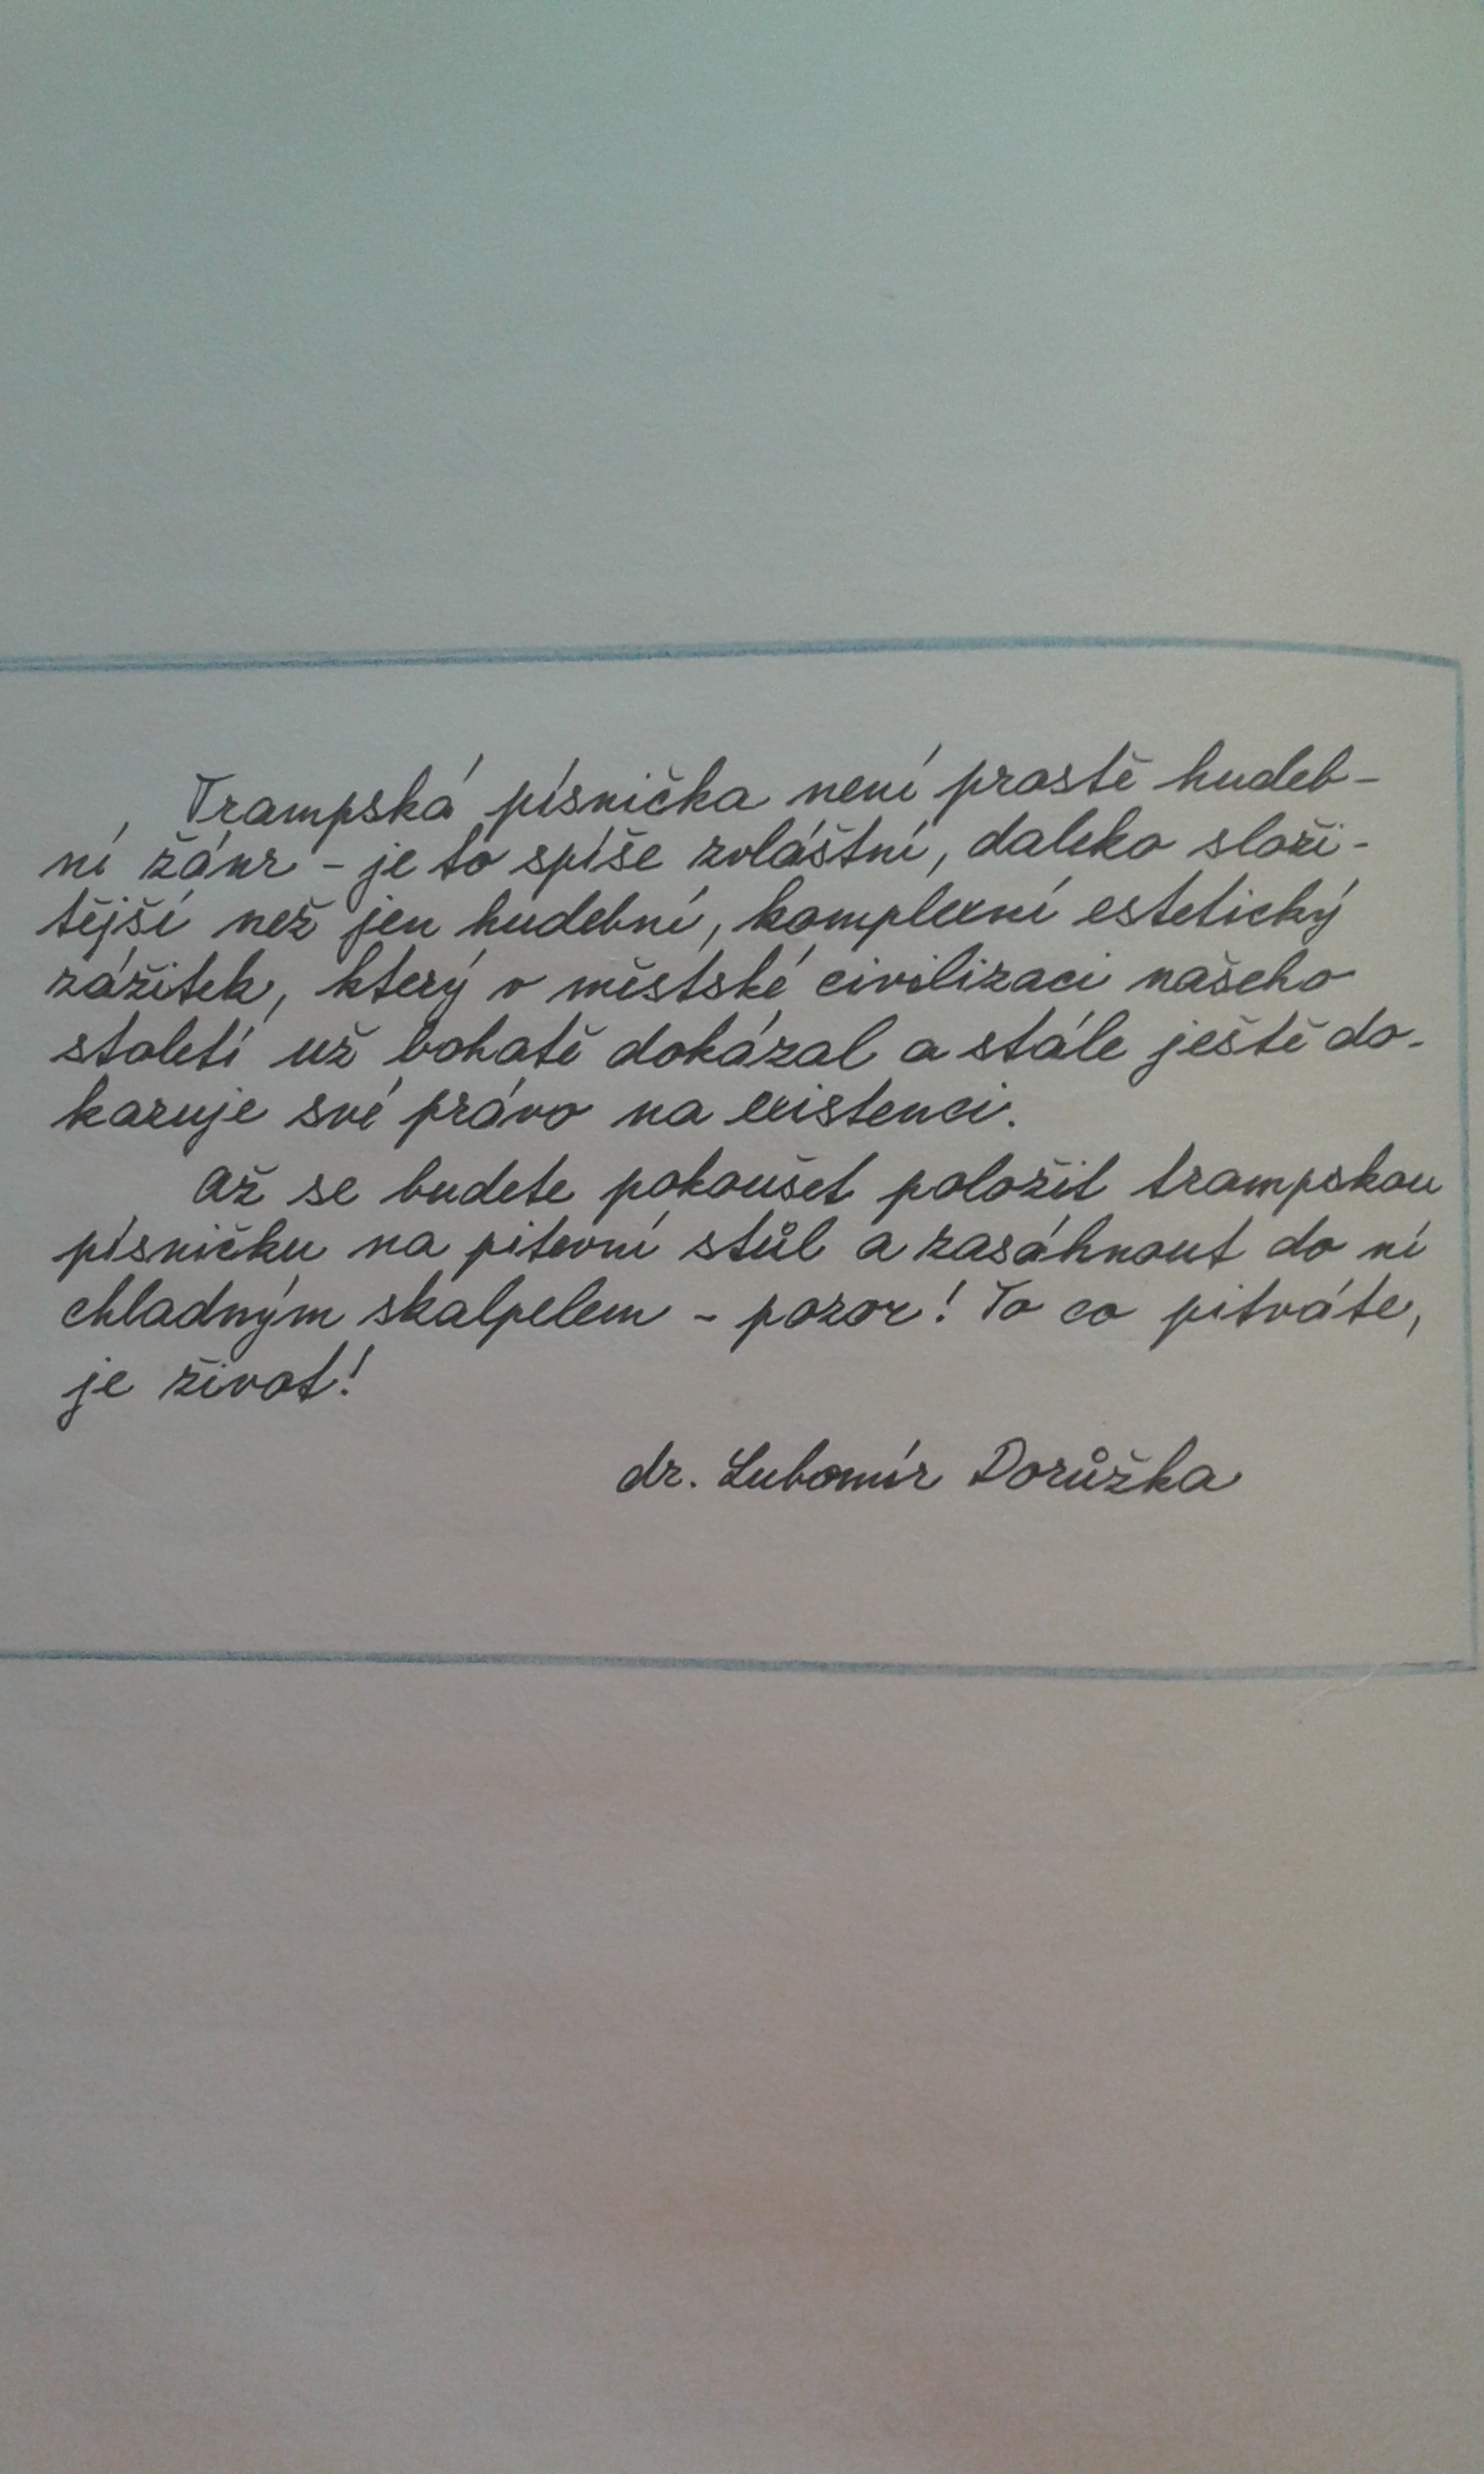 Trampská písnička není prostě hudeb-
ní žánr - je to spíše zvláštní, daleko složi-
tější než jen hudební, komplexní estetický
zážitek, který v městské civilizaci našeho
století už bohatě dokázal a stále ještě do-
kazuje své právo na existenci.
Až se budete pokoušet položit trampskou
písničku na pitevní stůl a zasáhnout do ní
chladným skalpelem - pozor! To co pitváte,
je život!
dr. Lubomír Dorůžka